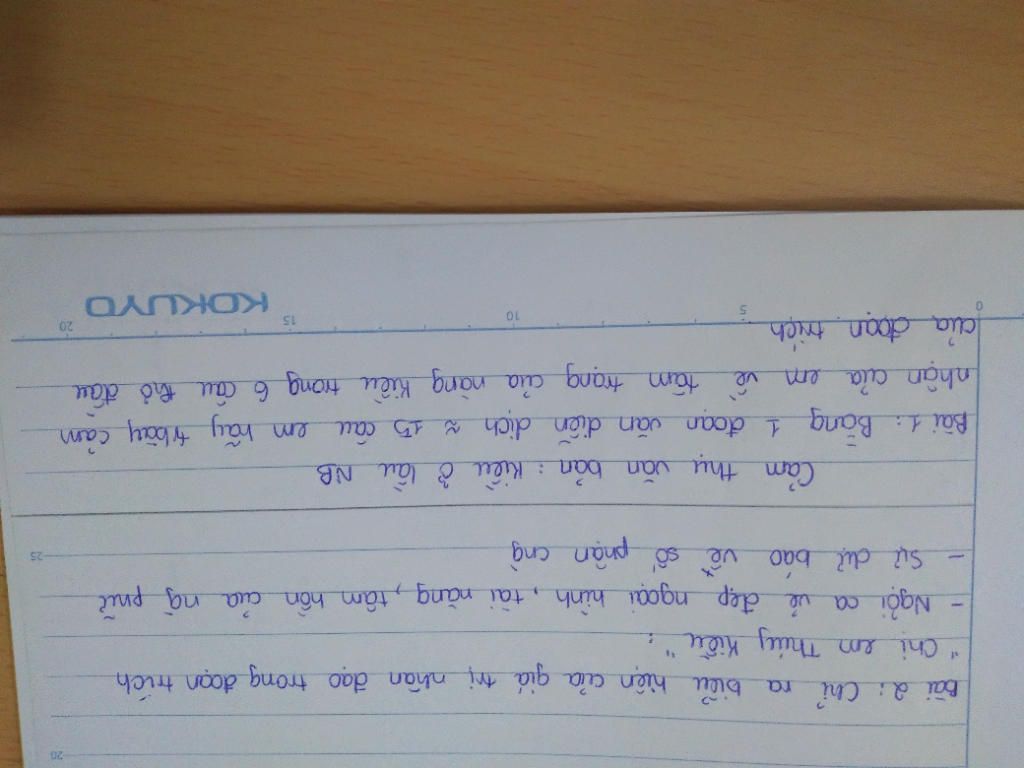 Bài 2: Chỉ ra biểu hiện của giá trị nhân đạo trong đoạn trích
"Chị em Thúy Kiều":
- Ngợi ca vẻ đẹp ngoại hình, tài năng, tâm hồn của ng` phụ nữ
- Sự dự báo về số phận cng
Cảm thụ văn bản: Kiều ở lầu NB
Bài 1: Bằng 1 đoạn văn diễn dịch ≈ 15 câu em hãy tr bày cảm
nhận của em về tâm trạng của nàng Kiều trong 6 câu thơ đầu
của đoạn trích
0 5 10 15 20
KOKUYO
20
25